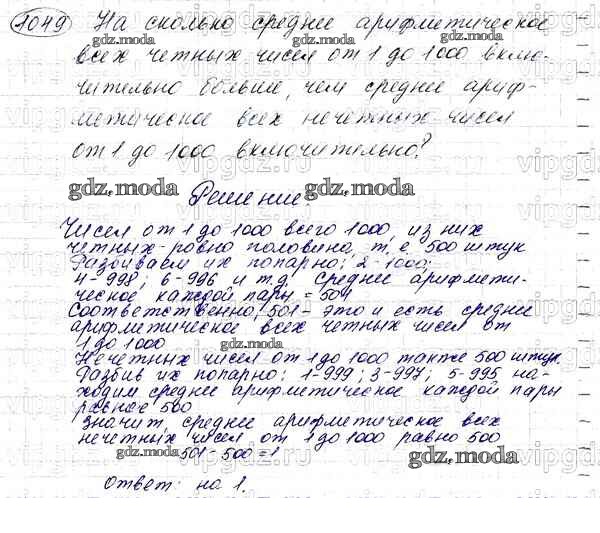 1049 На сколько среднее арифметическое
всех четных чисел от 1 до 1000 вклю-
чительно больше, чем среднее ариф-
метическое всех нечетных чисел
от 1 до 1000 включительно?
gdz.moda
Решение:
Чисел от 1 до 1000 всего 1000, из них
четных - ровно половина, т. е. 500 штук
Разбиваем их попарно: 2-1000;
4-998; 6-996 и т.д. Среднее арифмети-
ческое каждой пары = 501
Соответственно, 501 - это и есть среднее
арифметическое всех четных чисел от
1 до 1000
Нечетных чисел от 1 до 1000 также 500 штук.
Разбив их попарно: 1-999; 3-997; 5-995 на-
ходим среднее арифметическое каждой пары
равное 500
Значит, среднее арифметическое всех
нечетных чисел от 1 до 1000 равно 500
501-500=1
Ответ: на 1.